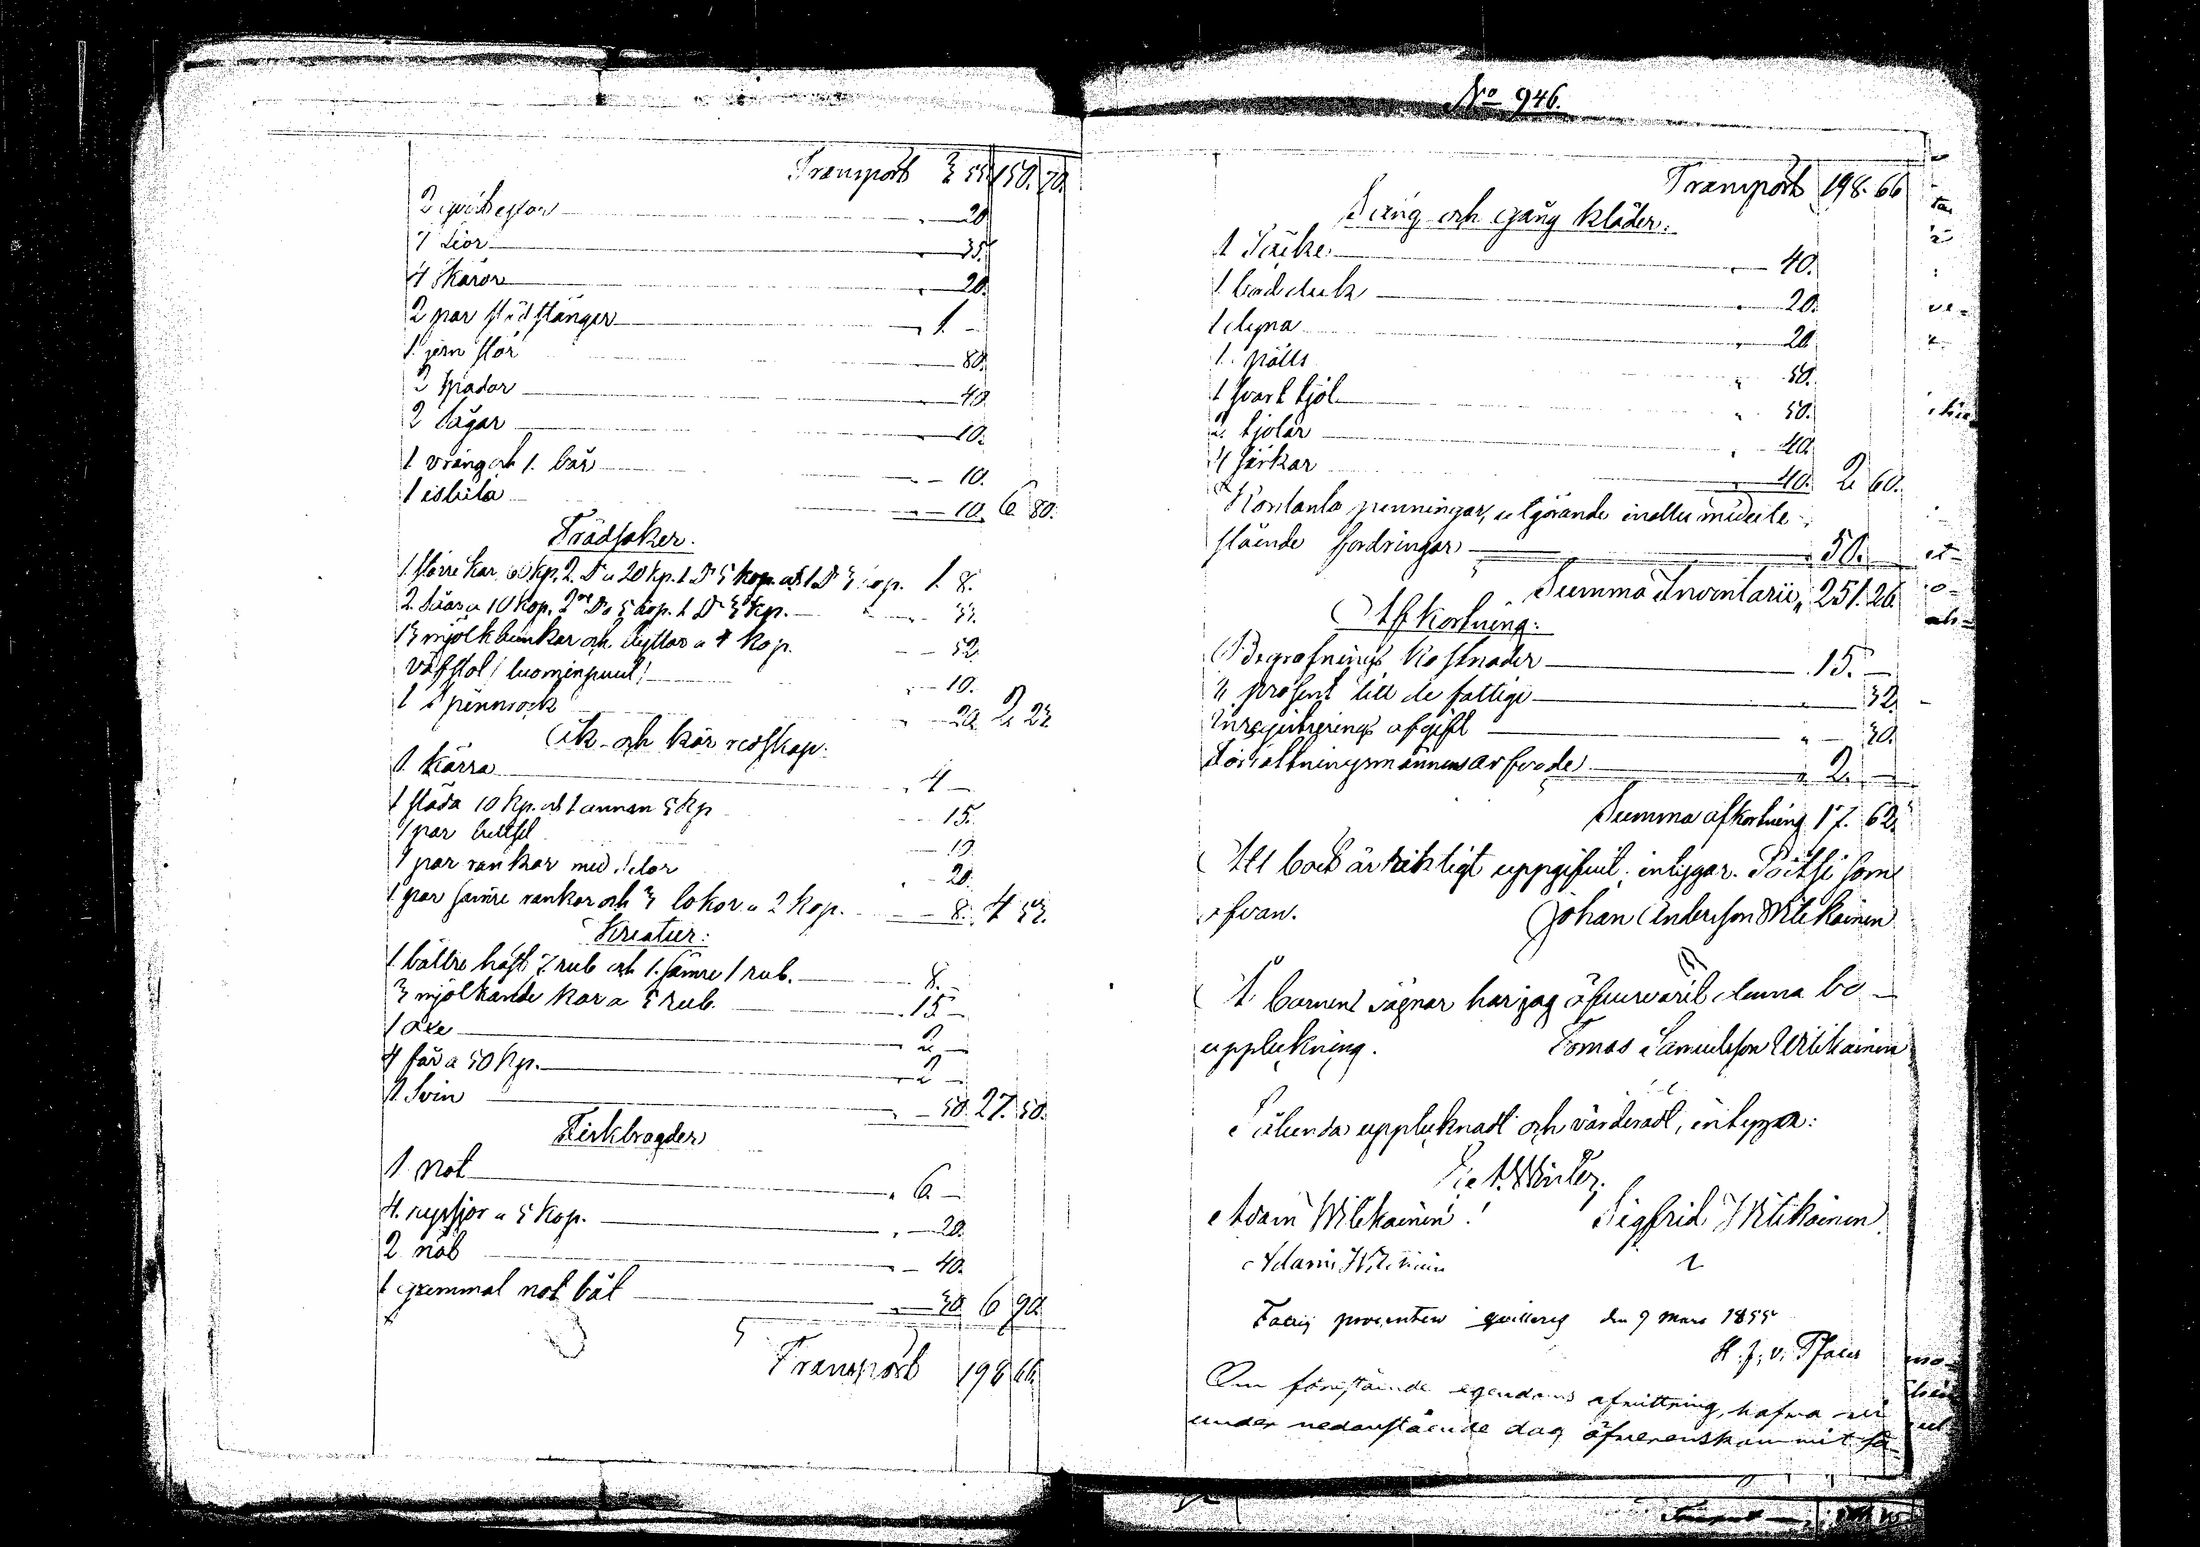 Transport 3 55 150. 70.
2 20
7 Lior 35.
4 Skäror 20.
2 par stödstänger 1. -
1. jern stör 80.
2 spador 40
2 Sågar 10.
1 vräng och 1. bår 10.
1 isbila 10. 6 80.
Trädsaker.
1 större kar 60 kp. 2. Do a 20 kp. 1 Do 5 kop. och 1 Do 3 kop. 1. 8.
2 Såar a 10 kop. 2ne Do 5 kop. 1 Do 3 kp. 33.
13 mjölkbunkar och byttor a 4 kop. 52.
Väfstol / luominpuut / 10.
1 spinnrock 20. 2 23
Åk- och kör redskap.
1 Kärra 4 -
1 släda 10 kp. och 1 annan 5 kp 15.
1 par 10.
1 par rankor med 20.
1 par sämre rankor och 3 lokor a 2 kop. 8. 4 53.
Kreatur:
1 bättre häst 7 rub och 1. sämre 1 rub. 8. -
3 mjölkande kor a 5 rub. 15 -
1 oxe 2 -
4 får a 50 kp. 2 -
1 Svin 50. 27. 50.
Fiskbragder
1 Not 6 -
4. ryssjor a 5 kop. 20.
2 nät 40.
1 gammal not båt 30. 6 90.
Transport 198 66.
No 946.
Transport 198. 66
Säng och gång kläder.
1 Täcke 40.
1 bord duk 20.
1 dyna 20
1. pälts 50.
1 svart kjol 50.
2 kjolar 40.
4 särkar 40. 2 60.
Kontanta penningar, utgörande
stående fordringar 50. -
Summa Inventarii 251. 26
Afkortning:
Begrafnings Kostnader 15. -
procent till de fattige 32.
Inregistrerings afgift 30.
Förrättningsmännens arfvode 2. -
Summa afkortning 17. 62.
Att boet är riktigt uppgifvit, intygar. som
ofvan. Johan Andersson Wilikainen
Å barnens vägnar har jag öfvervarit denna bo-
uppteckning. Tomas Samuelsson Wilikainen
Sålunda upptecknadt och värderadt, intyga:
Adam Wilikainen ! Sigfrid Wilikainen
Adam Wilikainen
Fattig procenten qvitteras den 9 Mars 1855
H. J. v.
Om förestående egendoms afvittring, hafva vi
under nedanstående dag öfverenskommit så